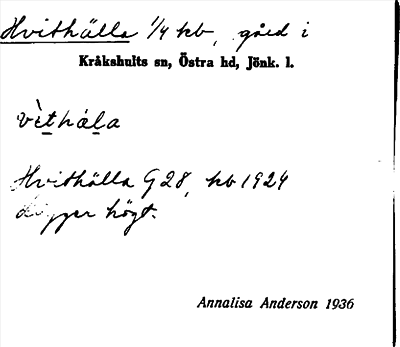 Hvithälla 1/4 kb, gård i
Kråkshults sn, Östra hd, Jönk. l.
vìthála
Hvithälla G28, kb 1924
Ligger högt.
Annalisa Anderson 1936